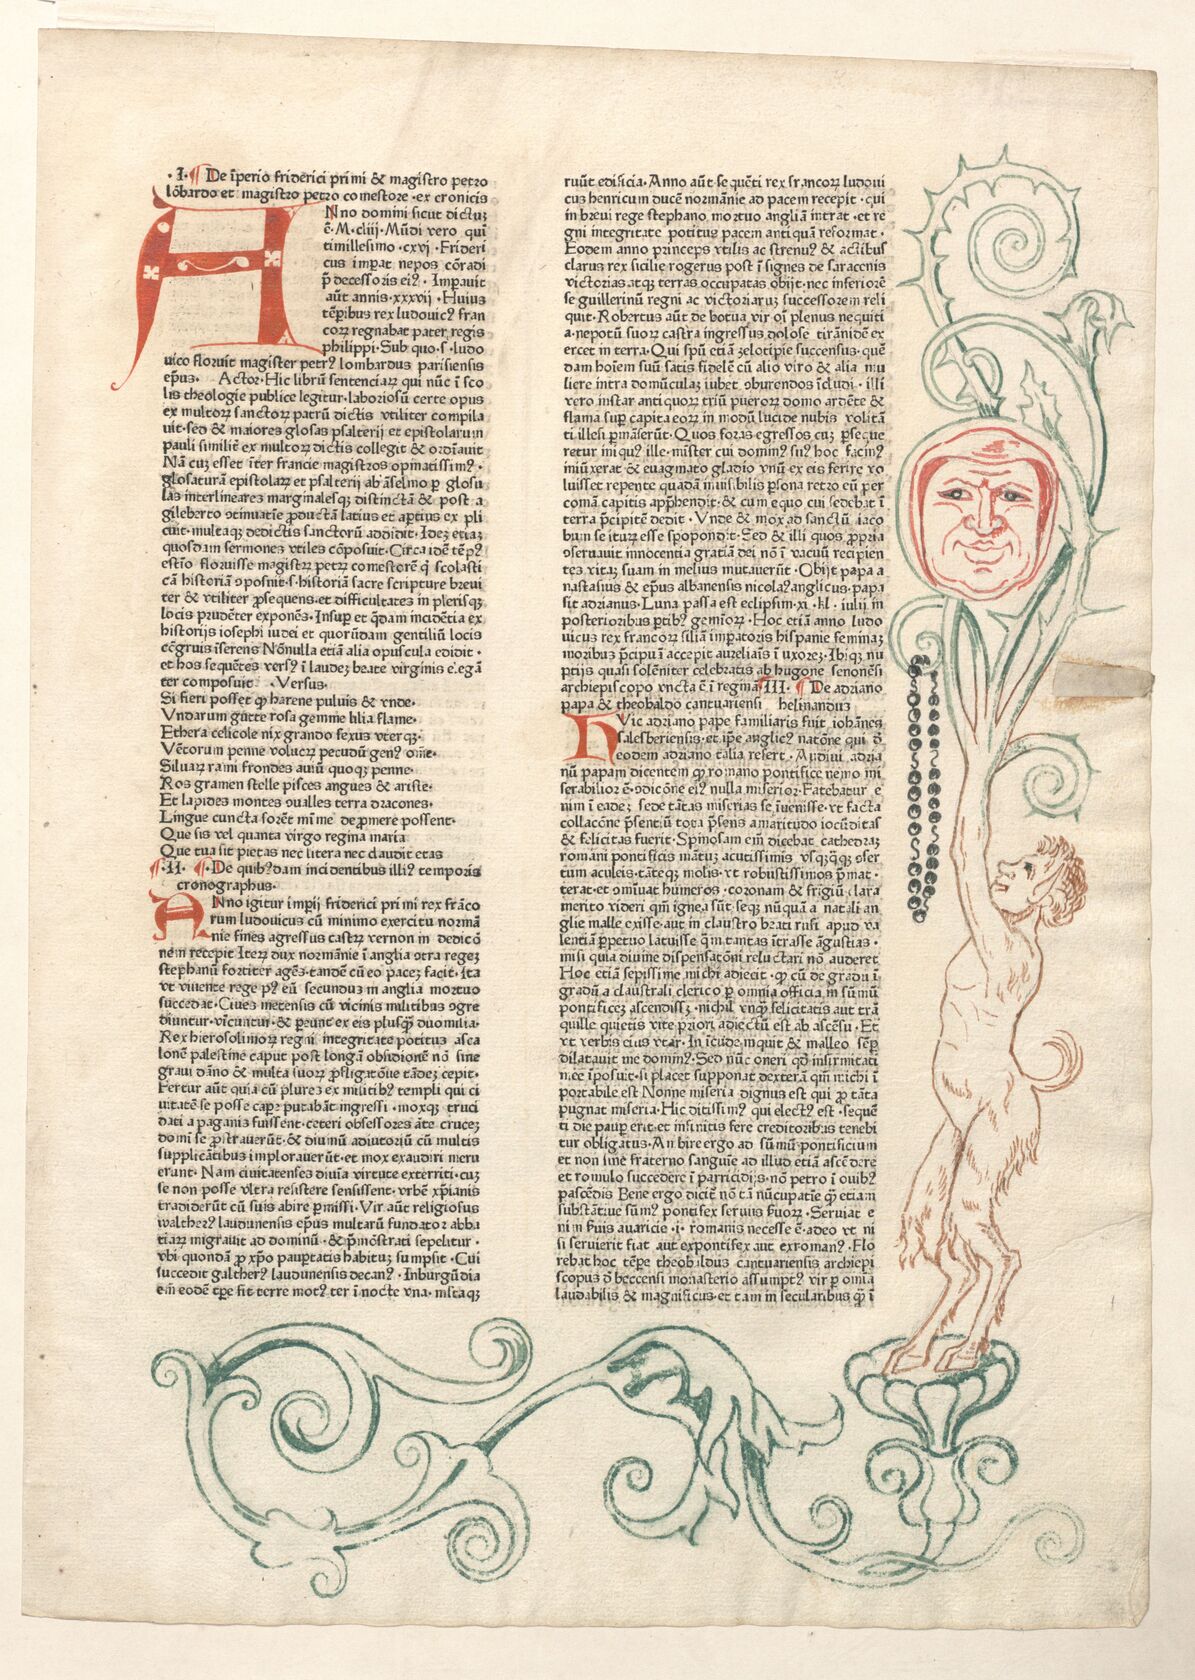 ·I· ¶ De īperio friderici primi & magistro petro
lōbardo et magistro petro comestore · ex cronicis
ANno domini sicut dictuꝫ
ē · M · cliij · Mūdi vero qui
timillesimo · cxvj · Frideri
cus impat nepos cōradi
p̄decessoris eiꝰ · Impauit
aūt annis · xxxvij · Huius
tēpibus rex ludouicꝰ fran
coꝝ regnabat pater regis
philippi · Sub quo · s · ludo
uico floruit magister petrꝰ lombardus parisiensis
ep̄us · Actor · Hic librū sentenciaꝝ qui nūc ī sco
lis theologie publice legitur · laboriosū certe opus
ex multoꝝ sanctoꝝ patrū dictis vtiliter compila
uit · sed & maiores glosas psalterij et epistolarum
pauli similiē ex multoꝝ dictis collegit & ordīauit
Nā cuꝫ esset īter francie magistros opinatissimꝰ ·
glosaturā epistolaꝝ et psalterij ab āselmo ꝑ glosu
las interlineares marginalesqꝫ distinctā & post a
gileberto ɔtinuatiē ꝓductā latius et aptius ex pli
cuit · multaqꝫ de dictis sanctorū addidit · Ideꝫ etiaꝫ
quosdam sermones vtiles cōposuit · Circa idē tēpꝰ
estīo floruisse magistꝝ petꝝ comestorē q̄ scolasti
cā historiā ɔposuit · s · historiā sacre scripture breui
ter & vtiliter ꝓsequens · et difficultates in plerisqꝫ
locis prudēter exponēs · Insuꝑ et q̄dam incidētia ex
historijs iosephi iudei et quorūdam gentiliū locis
cōgruis īserens Nōnulla etiā alia opuscula edidit ·
et hos sequētes versꝰ ī laudeꝫ beate virginis elegā
ter composuit · Versus ·
Si fieri posset ꝙ harene puluis & vnde ·
Vndarum gutte rosa gemme lilia flame ·
Ethera celicole nix grando sexus vterqꝫ ·
Vētorum penne volucꝝ pecudū genꝰ om̄e ·
Siluaꝝ rami frondes auiū quoqꝫ penne ·
Ros gramen stelle pisces angues & ariste ·
Et lapides montes ɔualles terra dracones ·
Lingue cuncta forēt mīme deꝓmere possent ·
Que sis vel quanta virgo regina maria
Que tua sit pietas nec litera nec claudit etas
¶ · II · ¶ · De quibꝰdam incidentibus illiꝰ temporis
cronographus ·
ANno igitur impij friderici primi rex frāco
rum ludouicus cū minimo exercitu normā
nie fines agressus castꝝ vernon in dedicō
nem recepit Iteꝝ dux normānie ī anglia ɔtra regeꝫ
stephanū fortiter agēs · tandē cū eo paceꝫ facit · Ita
vt viuente rege pꝰ eū secundus in anglia mortuo
succedat · Ciues metensis cū vicinis militibus ɔgre
diuntur · vīcūtur · & ꝑeunt ex eis plusqꝫ duo milia ·
Rex hierosolimoꝝ regni integritate potitus asca
lonē palestine caput post longā obsidionē nō sine
graui dāno & multa suoꝝ ꝓfligatōue tādeꝫ cepit ·
Fertur aūt quia cū plures ex militibꝰ templi qui ci
uitatē se posse capere putabāt ingressi · moxqꝫ truci
dati a paganis fuissent · ceteri obsessores āte cruceꝫ
domī se ꝓstrauerūt · & diuinū adiutoriū cū multis
supplicātibus implorauerūt · et mox exaudiri meru
erant · Nam ciuitatenses diuīa virtute exterriti · cuꝫ
se non posse vltra resistere sensissent · vrbē xp̄ianis
tradiderūt cū suis abire ꝑmissi · Vir aūt religiosus
waltherꝰ laudunensis ep̄us multarū fundator abba
tiaꝝ migrauit ad dominū · & p̄mōstrati sepelitur ·
vbi quondā ꝓ xp̄o paupertatis habituꝫ sumpsit · Cui
succedit galtherꝰ laudunensis decanꝰ · In burgūdia
em̄ eodē tꝑe fit terre motꝰ ter ī nocte vna · mltaqꝫ
ruūt edificia · Anno aūt sequēti rex francoꝝ ludoui
cus henricum ducē normānie ad pacem recepit · qui
in breui rege stephano mortuo angliā intrat · et re
gni integritate potitus pacem antiquā reformat ·
Eodem anno princeps vtilis ac strenuꝰ & actibus
clarus rex sicilie rogerus post īsignes de saracenis
victorias atqꝫ terras occupatas obijt · nec inferiorē
se guillerinū regni ac victoriaruꝫ successorem reli
quit · Robertus aūt de botua vir oī plenus nequiti
a · nepotū suoꝝ castra ingressus dolose tirānidē ex
ercet in terra · Qui spū etiā zelotipie succensus · quē
dam hoīem suū satis fidelē cū alio viro & alia mu
liere intra domūculaꝫ iubet ɔburendos īcludi · illi
vero instar antiquoꝝ triū pueroꝝ domo ardēte &
flama suꝑ capita eoꝝ in modū lucide nubis volitā
ti illesi ꝑmāserūt · Quos foras egressos cuꝫ ꝑseque
retur iniquꝰ ille · mīster cui dominꝰ suꝰ hoc facinꝰ
iniūxerat & euaginato gladio vnū ex eis ferire vo
luisset repente quadā inuisibilis ꝑsona retro eū per
comā capitis apphendit · & cum equo cui sedebat ī
terra p̄cipitē dedit · Vnde & mox ad sanctū iaco
bum se iturꝝ esse spopondit · Sed & illi quos ꝓpria
ɔseruauit innocentia gratiā dei nō ī vacuū recipien
tes vitaꝫ suam in melius mutauerūt · Obijt papa a
nastasius & ep̄us albanensis nicolaꝰ anglicus · papa
fit adrianus · Luna passa est eclipsim · xi · kl · iulij in
posterioribus ꝑtibꝰ geminoꝝ · Hoc etiā anno ludo
uicus rex francoꝝ filiā imꝑatoris hispanie feminaꝫ
moribus p̄cipuī accepit aurelianis ī vxoreꝫ · Ibiqꝫ nu
ptijs quasi solēniter celebratis ab hugone senonēsi
archiepiscopo vncta ē ī regina ¶ III · ¶ De adriano
papa & theobaldo cantuariensi helinandus
HVic adriano pape familiaris fuit iohānes
salesberiensis · et ip̄e anglicꝰ natōne qui d̄
eodem adriano talia refert · Audiui adria
nū papam dicentem ꝙ romano pontifice nemo mi
serabilior ē · ɔdicōne eiꝰ nulla miserior · Fatebatur e
nim ī eadeꝫ sede tātas miserias se īuenisse · vt facta
collacōne p̄sentiū tota p̄sens amaritudo iocūditas
& felicitas fuerit · Spinosam em̄ dicebat cathedraꝫ
romani pontificis mātuꝫ acutissimis vsqꝫqꝫ ɔser
tum aculeis · tāteqꝫ molis · vt robustissimos p̄mat ·
terat · et ɔminuat humeros · coronam & frigiū clara
merito videri qm̄ ignea sūt · seqꝫ nūquā a natali an
glie malle exisse · aut in claustro beati rufi apud va
lentiā ꝑpetuo latuisse q̄m tantas ītrasse āgustias ·
nisi quia diuine dispensatōni reluctari nō auderet
Hoc etiā sepissime michi adiecit · ꝙ cū de gradu ī
gradū a claustrali clerico ꝑ omnia officia in sūmū
pontificeꝫ ascendisset · nichil vnqꝫ felicitatis aut trā
quille quietis vite priori adiectū est ab ascēsu · Et
vt verbis eius vtar · In īcude inquit & malleo semꝑ
dilatauit me dominꝰ · Sed nūc oneri qd̄ infirmitati
mee īposuit · si placet supponat dexterā qm̄ michi ī
portabile est Nonne miseria dignus est qui ꝓ tāta
pugnat miseria · Hic ditissimꝰ qui electꝰ est · sequē
ti die pauꝑ erit · et infinitis fere creditoribus tenebi
tur obligatus · Ambire ergo ad sūmū pontificium
et non sine fraterno sanguīe ad illud etiā ascēdere
et romulo succedere ī parricidijs · nō petro ī ouibꝰ
pascēdis Bene ergo dicit̄ nō tā nūcupatiōe q̄ etiam
substātiue sūmꝰ pontifex seruus seruoꝝ · Seruiat e
nim suis auaricie · i · romanis necesse ē · adeo vt ni
si seruierit fiat aut expontifex aut exromanꝰ · Flo
rebat hoc tēpe theobaldus cantuariensis archiepi
scopus d̄ beccensi monasterio assumptꝰ vir ꝑ omīa
laudabilis & magnificus · et tam in secularibus q̄ ī